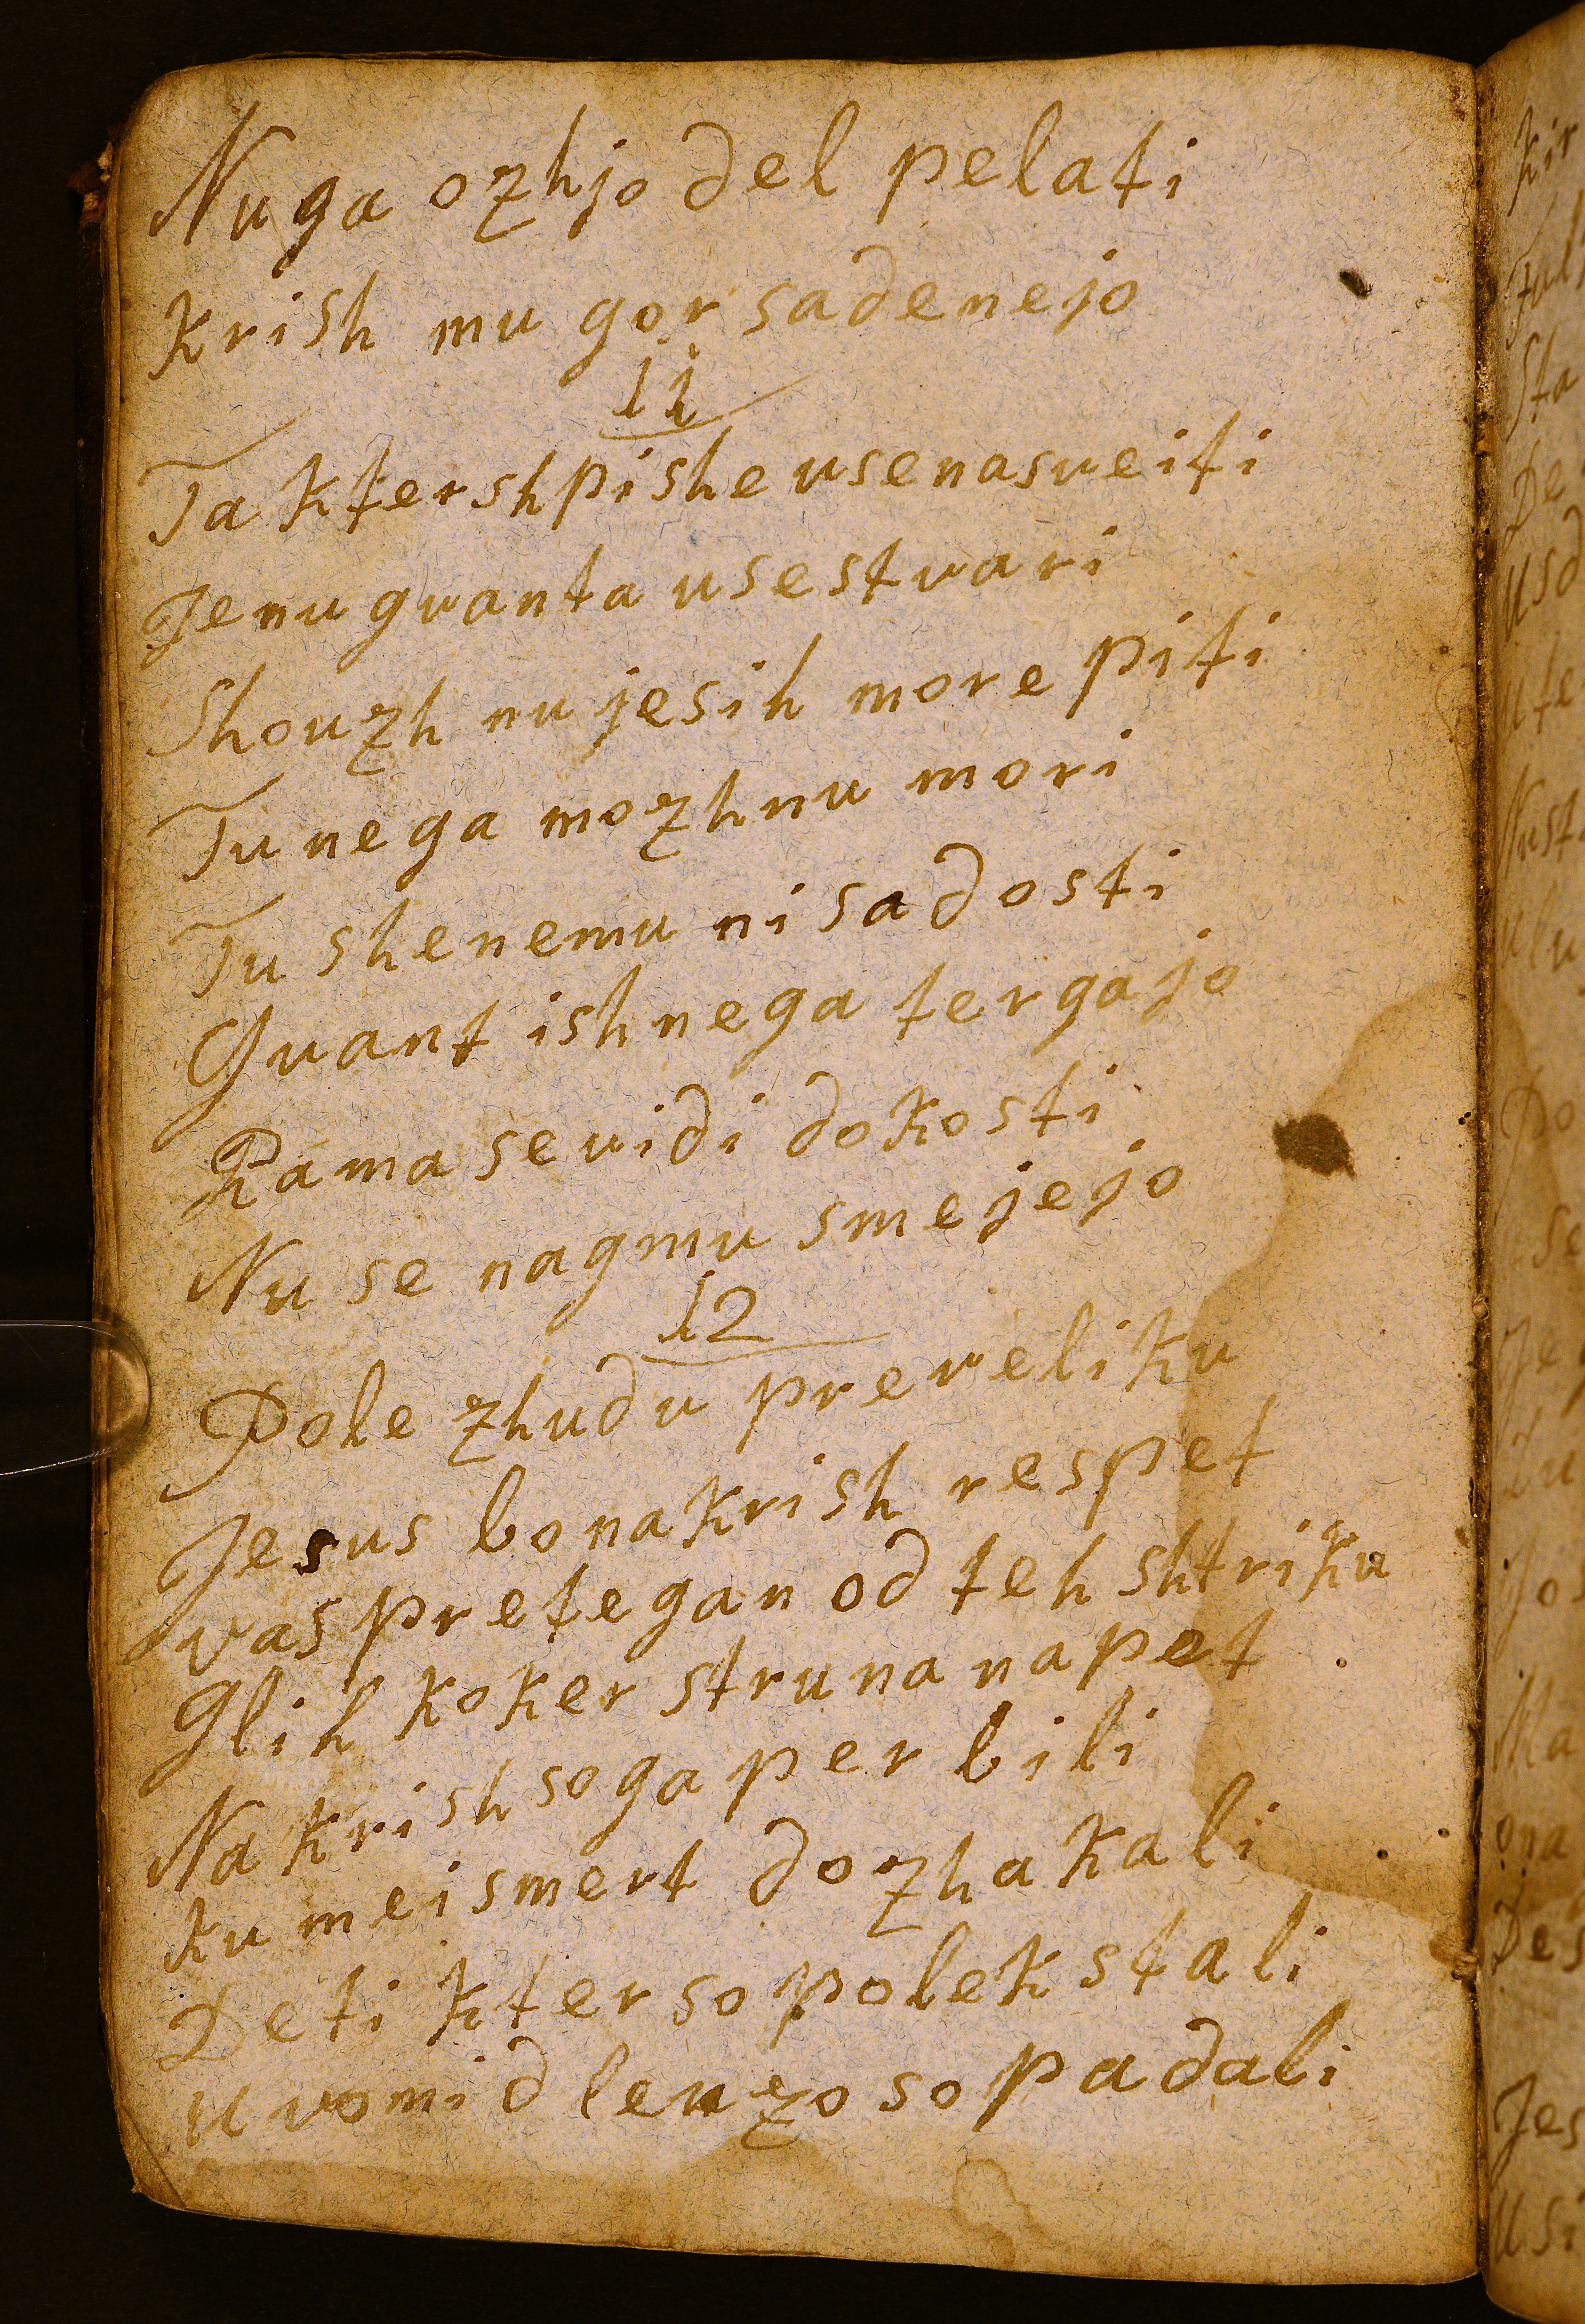 Nuga ozhjo del pelati
Krish mu gor sadenejo
11
Ta kter shpishe usenasveiti
Jenu gvanta use stvari
Shouzh nu jesih more piti
Tu nega mozhnu mori
Tu shenemu ni sadosti
Gvant ish nega tergajo
Rama se vidi do kosti
Nu se nagmu smejejo
12
Pole zhudu preveliku
Jesus bo na krish respet
vas pretegan od teh shtriku
Glih koker struna napet
Na krish so ga per bili
Ku mei smert dozhakali
Deti kter so polek stali
u vomidleuzo so padali